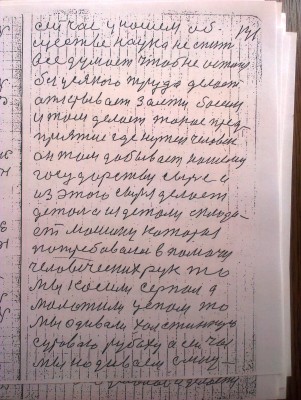 сичас у ношем об 141
ществе наука не спит
все думает чтоб не остат
без усякого труда делает
открывает Залти босом
и том делает такое пред
приятие где нужен человек
он там добывает нашему
государству сырье и
из этого сырья делает
детола из детолу складо
ет мошину которая
потребовала в помочи
человеческих рук то
мы косили серпом а
молотили цепом то
мы одивали холстинную
суровою рубаху а сичас
мы нодиваем